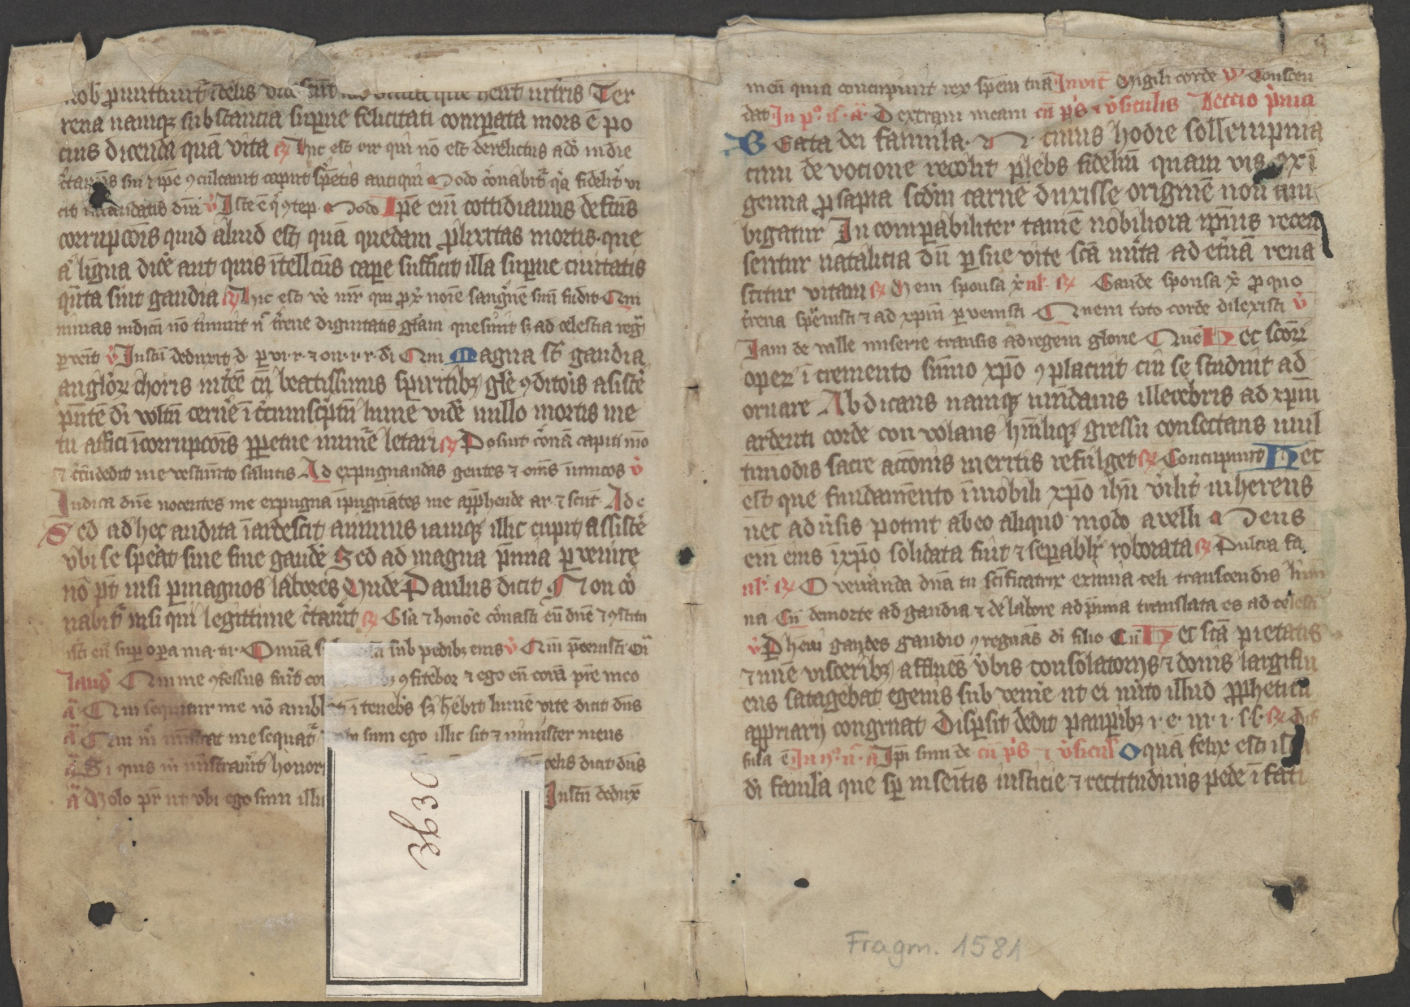 rena namqꝫ substantia supne felicitati conparata mors ē po
cius dicenda quā vita ꝶ hic est vir qui nō est derelictus a dō in die
cit mandatis dnī v̄ Iste ē q̇ ꝯtēp. Modo Ipē em̄ cottidianus defctūs
corrupcōis quid aliud est quā quedam plixitas mortis. que
ā ligna dicē aut quis ītellcūs capē sufficit illa supne ciuitatis
q̄nta sint gaudia ꝶ hic est vē mr̄ qui p xp̄ noīe sanguinē suū fudit Qui
minas iudicū nō timuit nͨ trene dignitatis glam quesiuit sꝫ ad celestia regͣ
puēit v̄ Iustū deduxit d. p vi. r. ⁊ on. i. r. di Qui Magna st̄ gaudia
angloꝝ choris intēe cū beatissimis spiritibꝫ glē ꝯditoris asistē
p̄ntē di voltū cernē ī ccūmscptū lumē vidē nullo mortis me
tu affici īcorrupcōis ppetue munē letari ꝶ Posuit corōā capiti mō
⁊ ccūdedit me vestimēto salutis Ad expugnandas gentes ⁊ om̄s inimicos v̄
Iudica dn̄e nocentes me expugna īpugnātes me apphende ar. ⁊ scut. Ad e
Sed ad hec audita īardescit animus iamqꝫ illic cupit assistē
vbi se speat sine fine gaudē Sed ad magna p̄mia puenire
nō pt̄ nisi p magnos labores Vnde Paulus dicit Non cō
nabit̄ nisi qui legittime ctauīt ꝶ Glā ⁊ honōe cōnasti eū dn̄e ⁊ ꝯstitu
isti eū sup opa ma. tu. Omīa s sub pedibꝫ eius v̄ Qm̄ p̄uenisti eū
laud Qui me ꝯfessus fūit co ꝯfitebor ⁊ ego eū corā pr̄e meo
ā Qui sequitur me nō ambl ī tenebs sꝫ hēbit lumē vite dicit dn̄s
ā Qui m̄ mistrat me sequat̄ sum ego illic sit ⁊ minister meus
ā Si quis m̄ mistrauīt honor celis dicit dn̄s
ā Volo pr̄ ut vbi ego sum illi Iustū deduxͭ
meū quia concupiuit rex spēm tuā Inuit Vigili corde v̄ Conscen
dat In pͦ. n. ā Dexteram meam cū pͥs ⁊ v̄siculis Leccio p̄ma
Beata dei famula. N. cuius hodie sollempnia
cum deuocione recolit plebs fideliū quam vis
genua prosapia scdm̄ carnē duxisse originē nō am
bigatur In comparabiliter tamē nobiliora ipīus recen
sentur natalicia dū p sue vite scā mīta ad etnā rena
scitur vitam ꝶ Veni sponsa x̄ nl̄. ꝶ Gaude sponsa x̄ pro quo
trena spreuisti ⁊ ad xpm̄ puenisti Quem toto corde dilexisti v̄
Iam de valle miserie transis ad regem glorie Quē Hec scōꝝ
opeꝝ ī cremento sum̄o xpō ꝯplacuit cui se studuit ad
ornare Abdicans namqꝫ mundanis illecebris ad xpm̄
ardenti corde conuolans hūīliqꝫ gressu consectans mul
timodis sacre accōnis meritis refulget ꝶ Concupiuit Hec
est que fundamento īmobili xpō ihū vilit̄ inherens
nec aduīsis potuit ab eo aliquo modo auelli Deus
em̄ eius ī xpō solidata fuit ⁊ sepabltͥ roborata ꝶ Pulcra fa.
nl̄. ꝶ O veneranda dnā tu scīficatrix eximia celi transcendis
na Cū de morte ad gaudia ⁊ de labore ad p̄mia translata es ad
v̄ Pheni gaudes gaudio ꝯregnās di filio Cū Hec scā pietatis
⁊ mīē visceribꝫ afflues vbis consolatorijs ⁊ donis largiflu
ens satagebat egenis subuenīe ut ei mīto illud ppheticū
appriari congruat Dispsit dedit paupibꝫ i. e. m. i. s. s. ꝶ
sula ē In ij. n. ā Ipi sum de cū pͥs ⁊ v̄siculꝭ O quā felix est
di famula que sp inseītis iusticie ⁊ rectitudinis pede ī fati
3630
Fragm. 1581